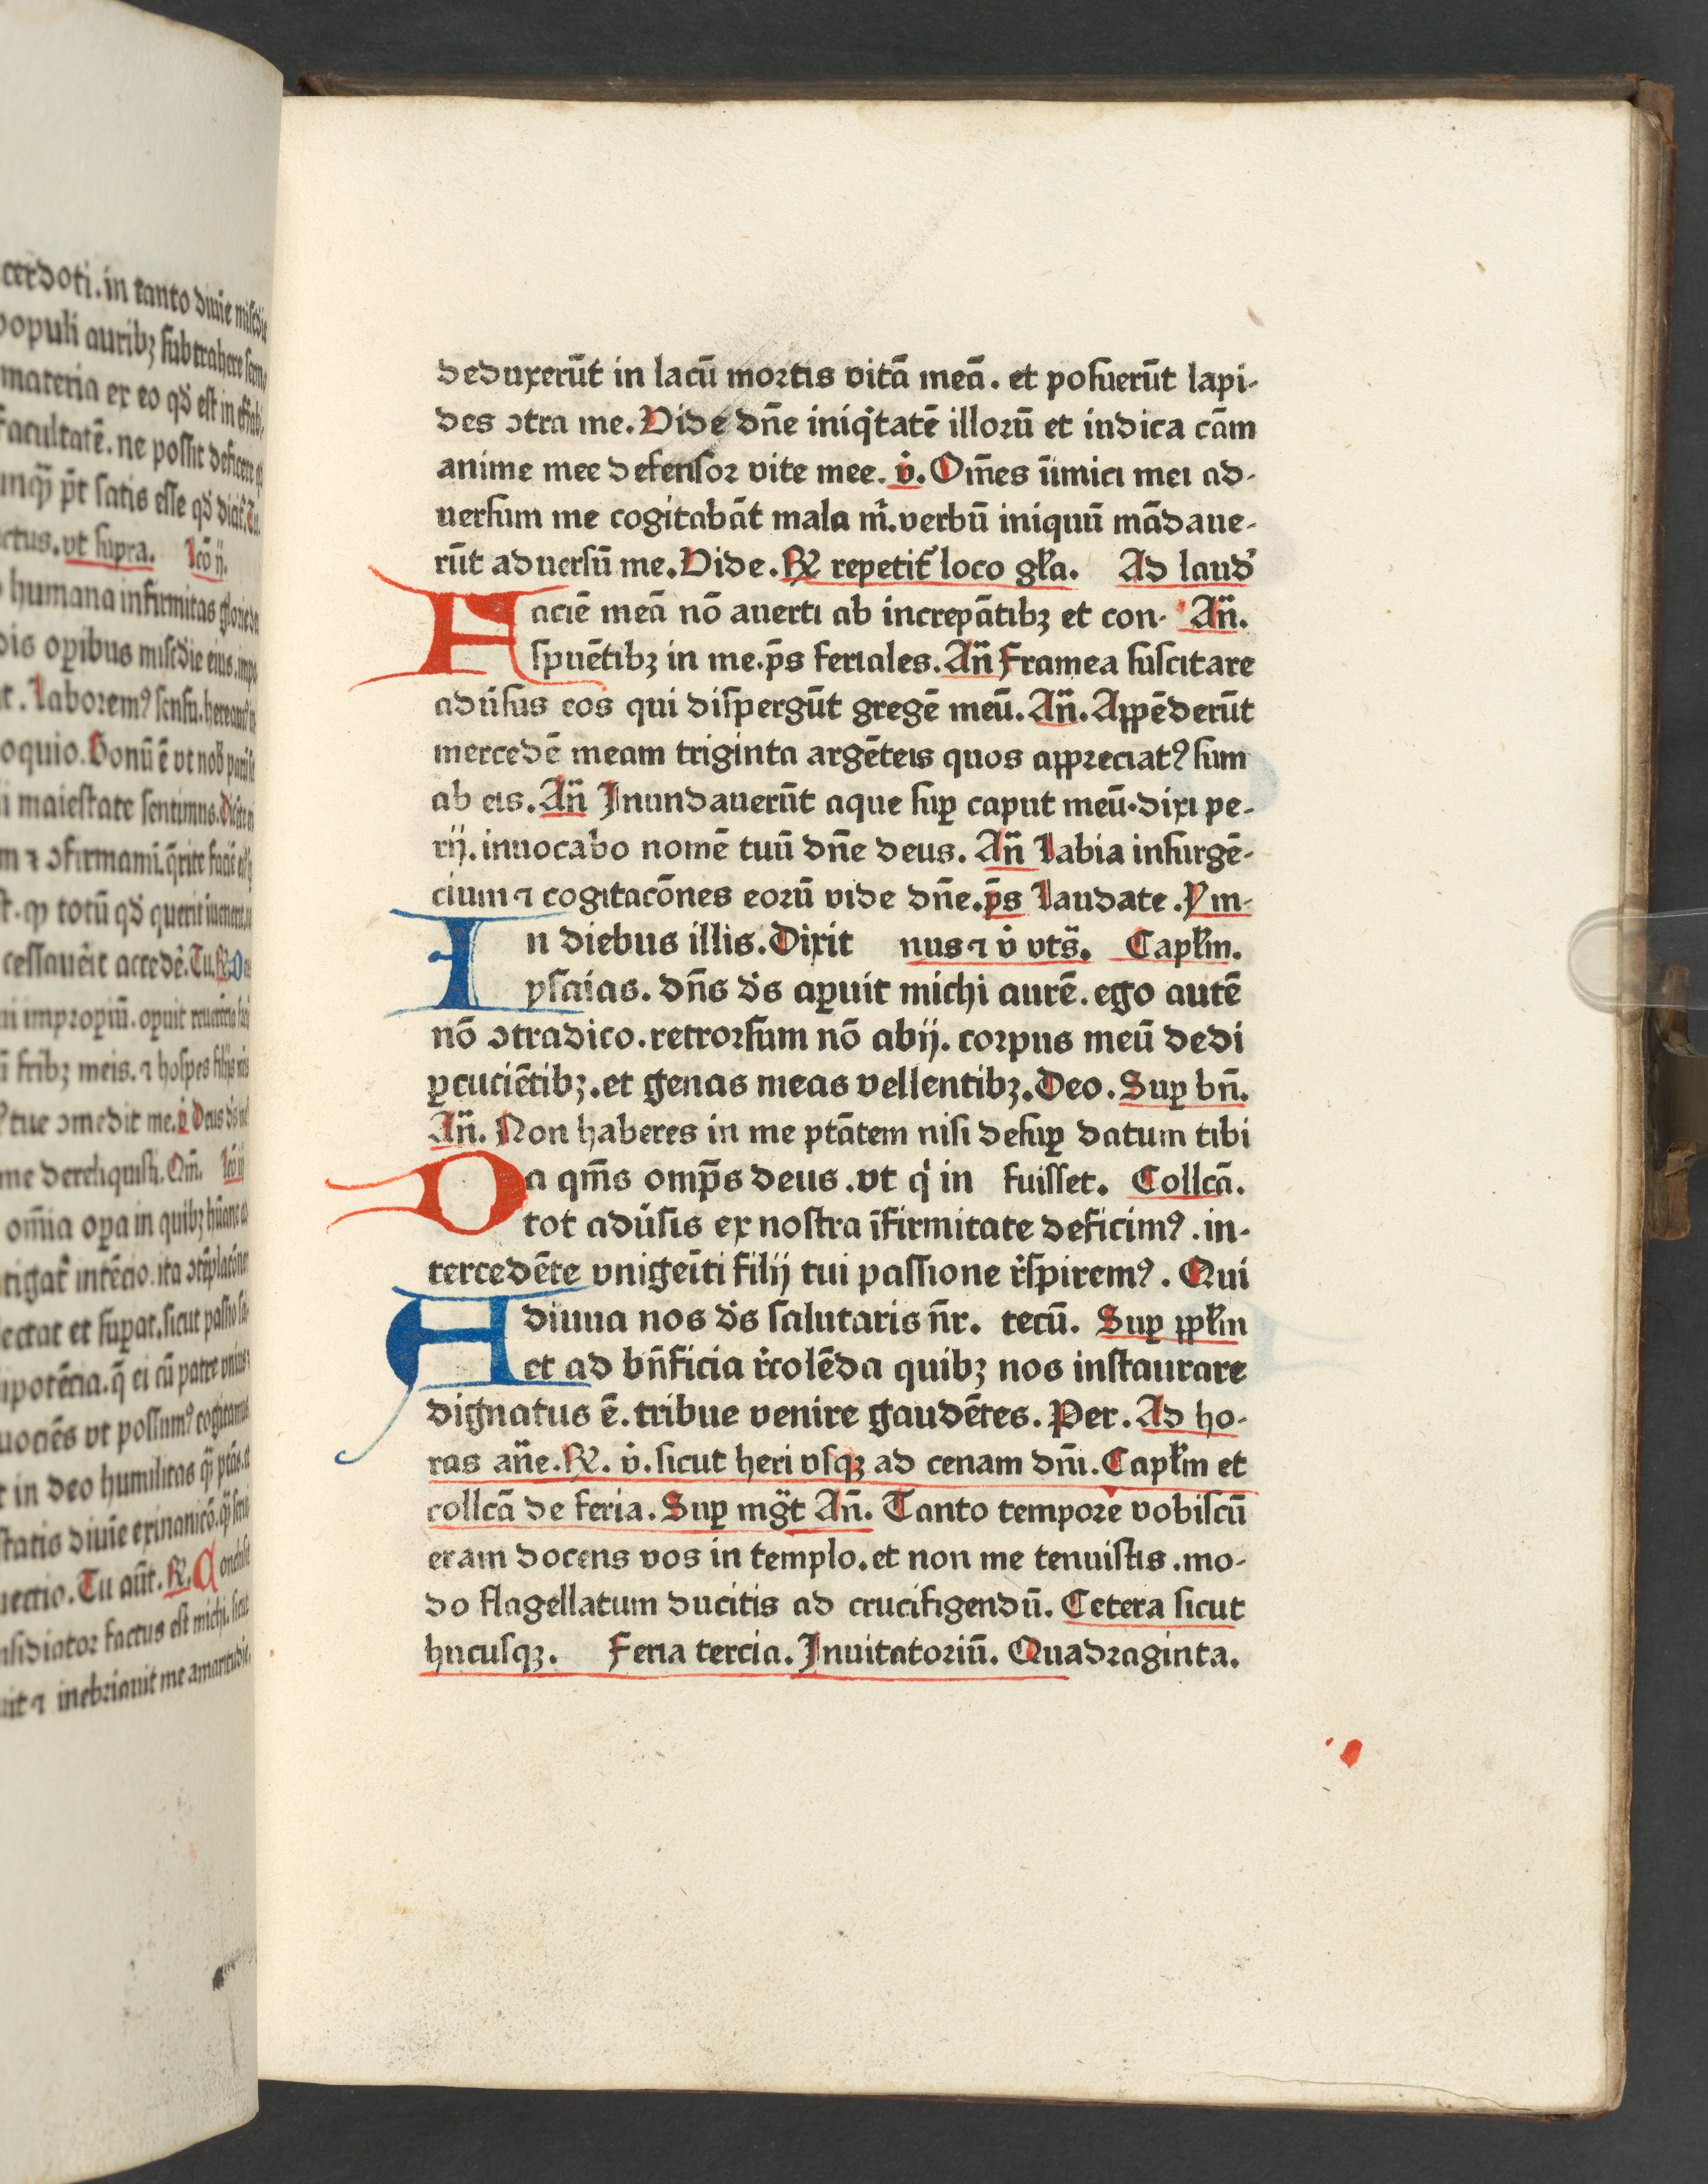 cerdoti. in tanto diuīe mis̄c̄die
populi aurib⁊ subtrahere sermo
materia ex eo qđ est in effabi-
facultatē. ne possit deficere
unqꝫ p̄t satis esse qđ dicat̄. Tu
ctus. vt supra. Lcō ij.
humana infirmitas glorie de
dis oꝑibus mis̄c̄die eius. impe
t. Laborem⁹ sensu. hereamꝰ in
oquio. Bonū ē vt nob̄ parū sit
maiestate sentimus.
m ⁊ ↄfirmamī. q̄rite faciē
t. qꝫ totū qđ querit
cessauerit accedē. Tu. ℟. O
ni impropiū. opuit reuerētia
ī frib⁊ meis. ⁊ hospes filijs
tue ↄmedit me. v̇ Deus ds̄
me dereliquisti. Om̄. Lcō iij
om̄ia oꝑa in quib⁊ hūane
tigat̄ intēcio. ita ↄtēplacōnē
lectat et suꝑat. sicut passio sa
ipotēcia. q̄ ei cū patre vnius
uociēs vt possum⁹ cogitamus
t in deo humilitas qꝫ ptās.
statis diuīe exinanicō. qꝫ
uectio. Tu aūt. ℟. Conclusit
nsidiator factus est michi. sicut
uit ⁊ inebriauit me amaritudīe.
deduxerūt in lacū mortis vitā meā. et posuerūt lapi-
des ↄtra me. Vide dn̄e iniq̇tatē illorū et indica cām
anime mee defensor vite mee. v̇. Om̄es īimici mei ad-
uersum me cogitabāt mala m̄. verbū iniquū mādaue-
rūt aduersū me. Vide. ℟ repetit̄ loco gl̄a. Ad laud̄
Faciē meā nō auerti ab increpātib⁊ et con- An̄.
spuētib⁊ in me. p̄s feriales. An̄ Framea suscitare
adūsus eos qui dispergūt gregē meū. An̄. Appēderūt
mercedē meam triginta argēteis quos appreciat⁹ sum
ab eis. An̄ Inundauerūt aque suꝑ caput meū. dixi pe-
rij. inuocabo nomē tuū dn̄e deus. An̄ Labia insurgē-
cium ⁊ cogitacōnes eorū vide dn̄e. p̄s Laudate. Ym-
In diebus illis. Dixit nus ⁊ v̇ vts̄. Capl̄m.
ysaias. dn̄s ds̄ aꝑuit michi aurē. ego autē
nō ↄtradico. retrorsum nō abij. corpus meū dedi
ꝑcuciētib⁊. et genas meas vellentib⁊. Deo. Suꝑ bn̄.
An̄. Non haberes in me ptātem nisi desuꝑ datum tibi
Da qm̄s omp̄s deus. vt q̇ in fuisset. Collcā.
tot adūsis ex nostra īfirmitate deficim⁹. in-
tercedēte vnigeīti filij tui passione r̄spirem⁹. Qui
Adiuua nos ds̄ salutaris n̄r. tecū. Suꝑ ppl̄m
et ad bn̄ficia r̄colēda quib⁊ nos instaurare
dignatus ē. tribue venire gaudētes. Per. Ad ho-
ras an̄e. ℟. v̇. sicut heri vsqꝫ ad cenam dn̄i. Capl̄m et
collcā de feria. Suꝑ mg̃t An̄. Tanto tempore vobiscū
eram docens vos in templo. et non me tenuistis. mo-
do flagellatum ducitis ad crucifigendū. Cetera sicut
hucusqꝫ. Feria tercia. Inuitatoriū. Quadraginta.